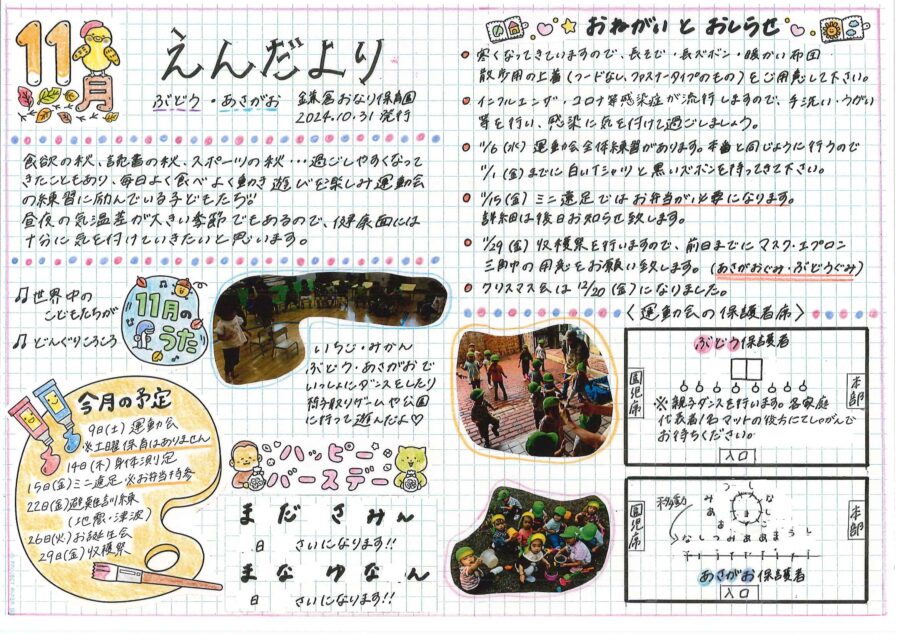 11月
えんだより
ぶどう・あさがお
鎌倉おなり保育園
2024.10.31 発行
食欲の秋、読書の秋、スポーツの秋…過ごしやすくなって
きたこともあり、毎日よく食べよく動き遊びを楽しみ運動会
の練習に励んでいる子どもたち!!
昼夜の気温差が大きい季節でもあるので、健康面には
十分に気を付けていきたいと思います。
♫世界中の
こどもたちが
♪どんぐりころころ
11月の
うた
いちご・みかん
ぶどう・あさがおで
いっしょにダンスをしたり
椅子取りゲームや公園
に行って遊んだよ♡
今月の予定
9日(土)運動会
※土曜保育はありません
14日(木)身体測定
15日(金)ミニ遠足 ※お弁当持参
22日(金)避難訓練
(地震・津波)
26日(火)お誕生会
29日(金)収穫祭
ハッピー
バースデー
まだ さみん
日 さいになります!!
まな ゆなん
日 さいになります!!
おねがいと おしらせ
寒くなってきていますので、長そで・長ズボン・暖かい布団
散歩用の上着(フードなし、ファスナータイプのもの)をご用意して下さい。
インフルエンザ・コロナ等感染症が流行しますので、手洗い・うがい
等を行い、感染に気を付けて過ごしましょう。
11/6(水)運動会全体練習があります。本番と同じように行うので
11/1(金)までに白いTシャツと黒いズボンを持ってきて下さい。
11/15(金)ミニ遠足ではお弁当が必要になります。
詳細は後日お知らせ致します。
11/29(金)収穫祭を行いますので、前日までにマスク・エプロン
三角巾の用意をお願い致します。(あさがおぐみ・ぶどうぐみ)
クリスマス会は12/20(金)になりました。
〈運動会の保護者席〉
ぶどう保護者
園児席
本部
※親子ダンスを行います。各家庭
代表者1名マットの後方にてしゃがんで
お待ちください。
入口
園児席
本部
移動
なしつみああまうし
あさがお保護者
入口